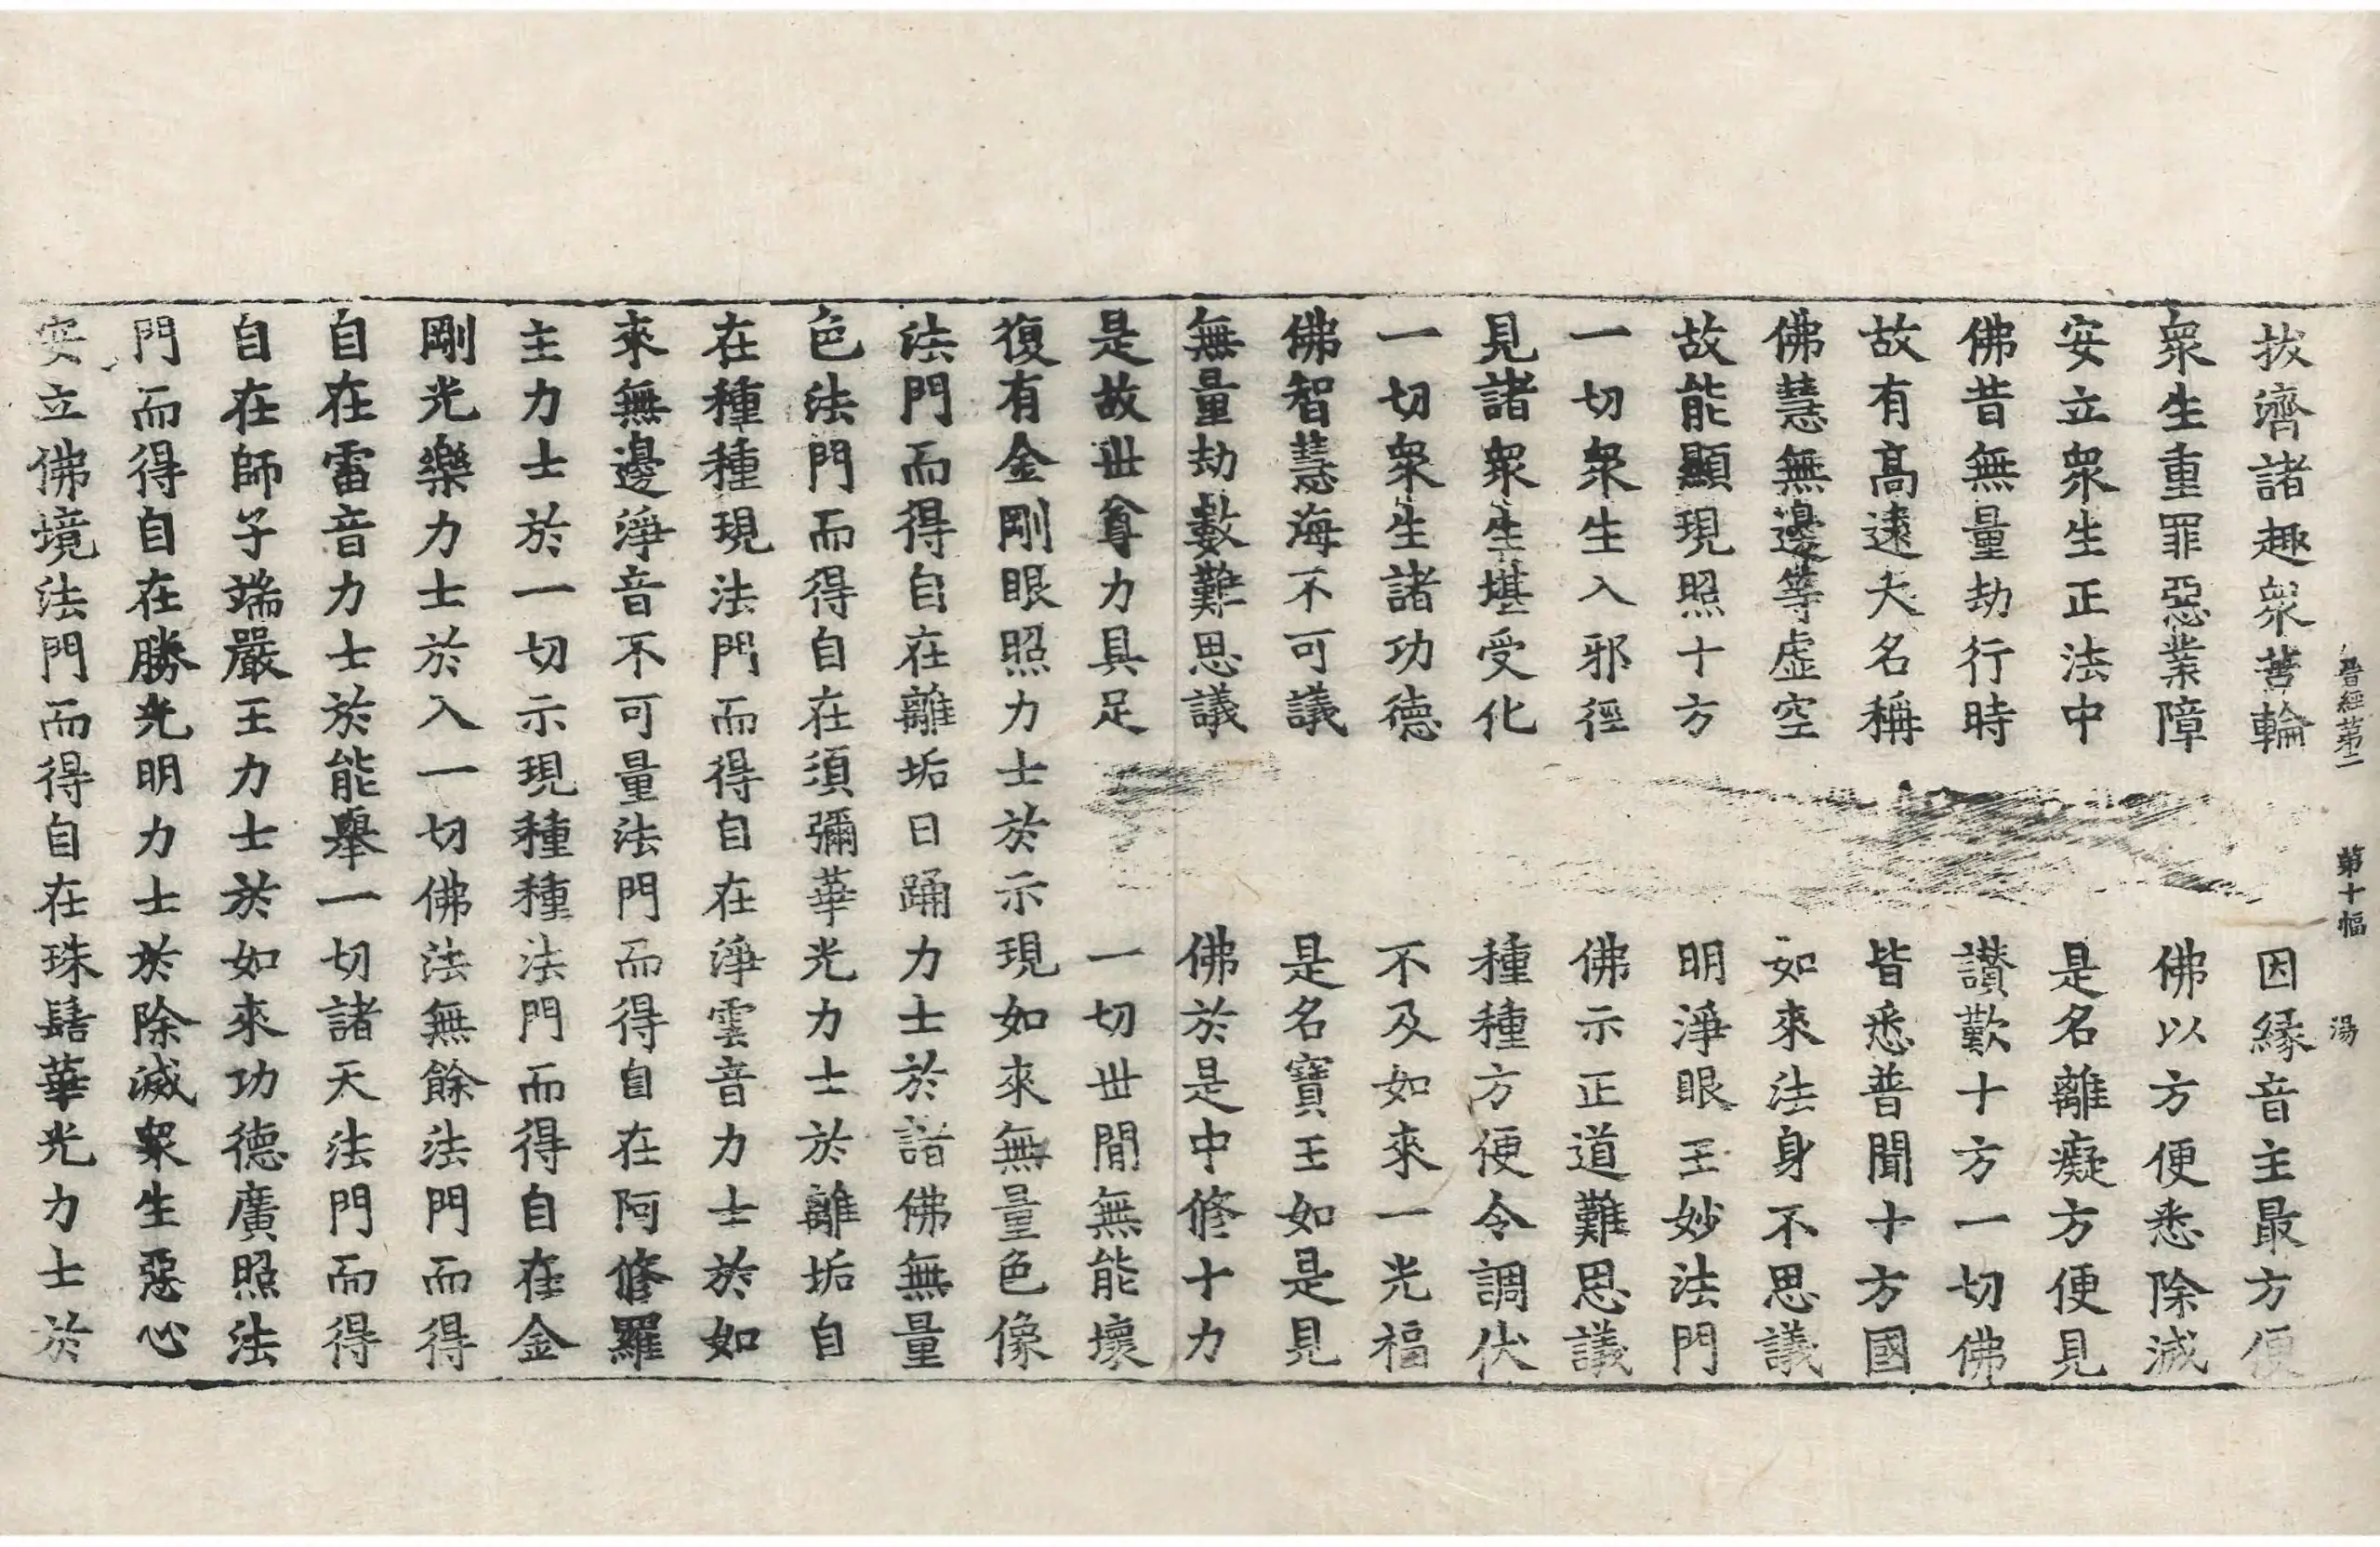 晉經第二 第十幅 湯
拔濟諸趣衆苦輪 因緣音主最方便
衆生重罪惡業障 佛以方便悉除滅
安立衆生正法中 是名離癡方便見
佛昔無量劫行時 讚歎十方一切佛
故有高遠大名稱 皆悉普聞十方國
佛慧無邊等虛空 如來法身不思議
故能顯現照十方 明淨眼王妙法門
一切衆生入邪徑 佛示正道難思議
見諸衆生堪受化 種種方便令調伏
一切衆生諸功德 不及如來一光福
佛智慧海不可議 是名寶王如是見
無量劫數難思議 佛於是中修十力
是故世尊力具足 一切世間無能壞
復有金剛眼照力士於示現如來無量色像
法門而得自在離垢日踊力士於諸佛無量
色法門而得自在須彌華光力士於離垢自
在種種現法門而得自在淨雲音力士於如
來無邊淨音不可量法門而得自在阿修羅
主力士於一切示現種種法門而得自在金
剛光樂力士於入一切佛法無餘法門而得
自在雷音力士於能舉一切諸天法門而得
自在師子端嚴王力士於如來功德廣照法
門而得自在勝光明力士於除滅衆生惡心
安立佛境法門而得自在珠髻華光力士於